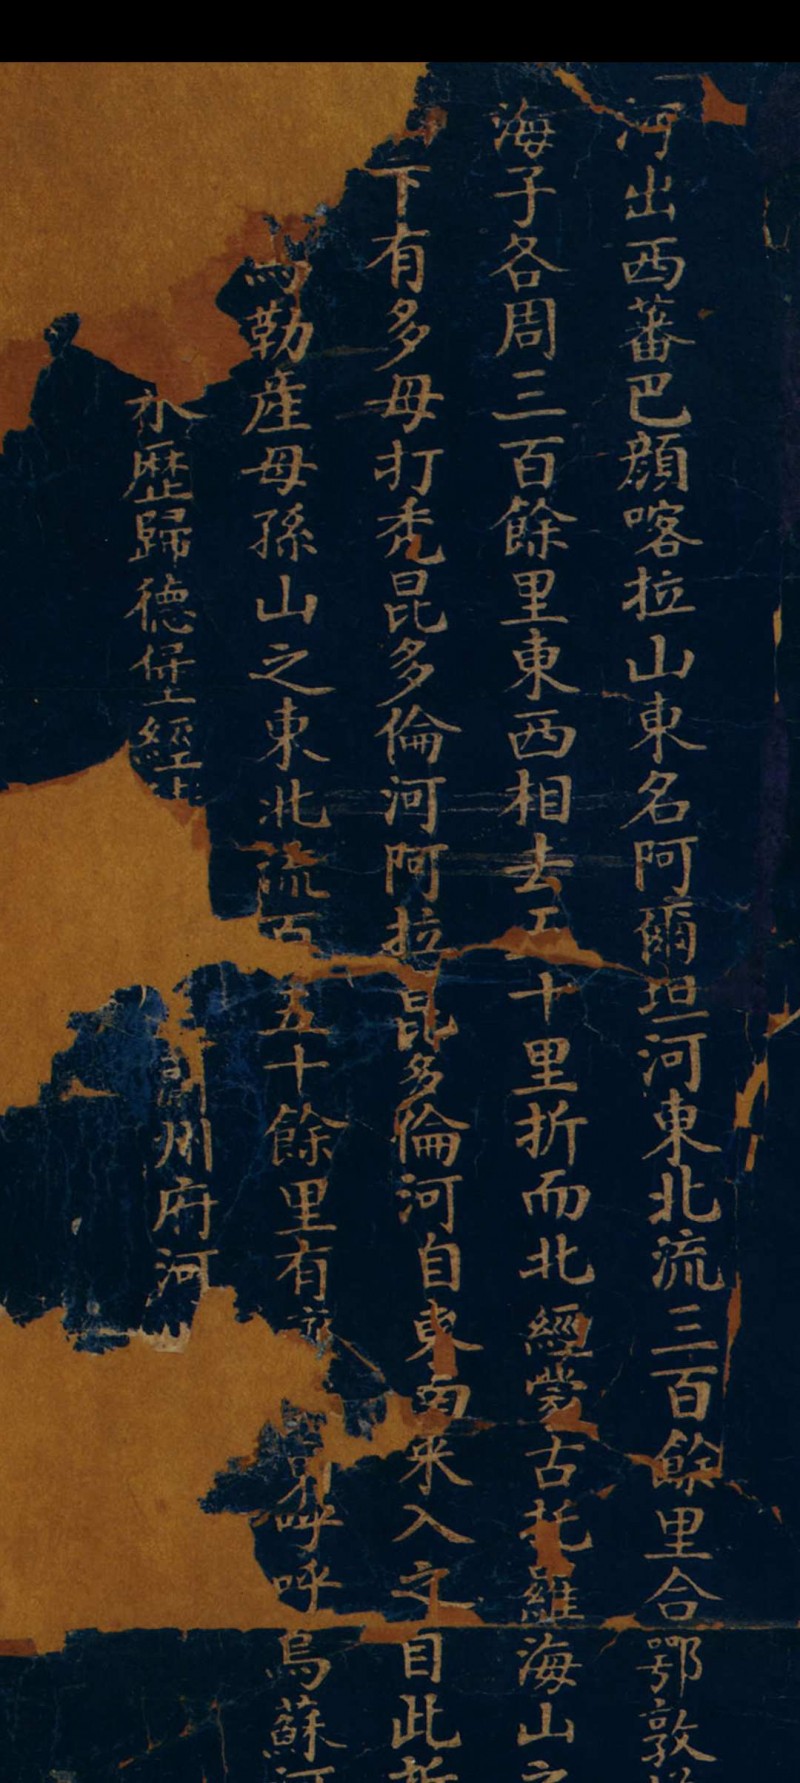 河出西蕃巴顏喀拉山東名阿爾坦河東北流三百餘里合鄂敦
海子各周三百餘里東西相去五十里折而北經蒙古托羅海山之
下有多母打禿昆多倫河阿拉昆多倫河自東南來入之自此折
勒產母孫山之東北流百五十餘里有呼呼烏蘇河
水歷歸德堡經
州府河